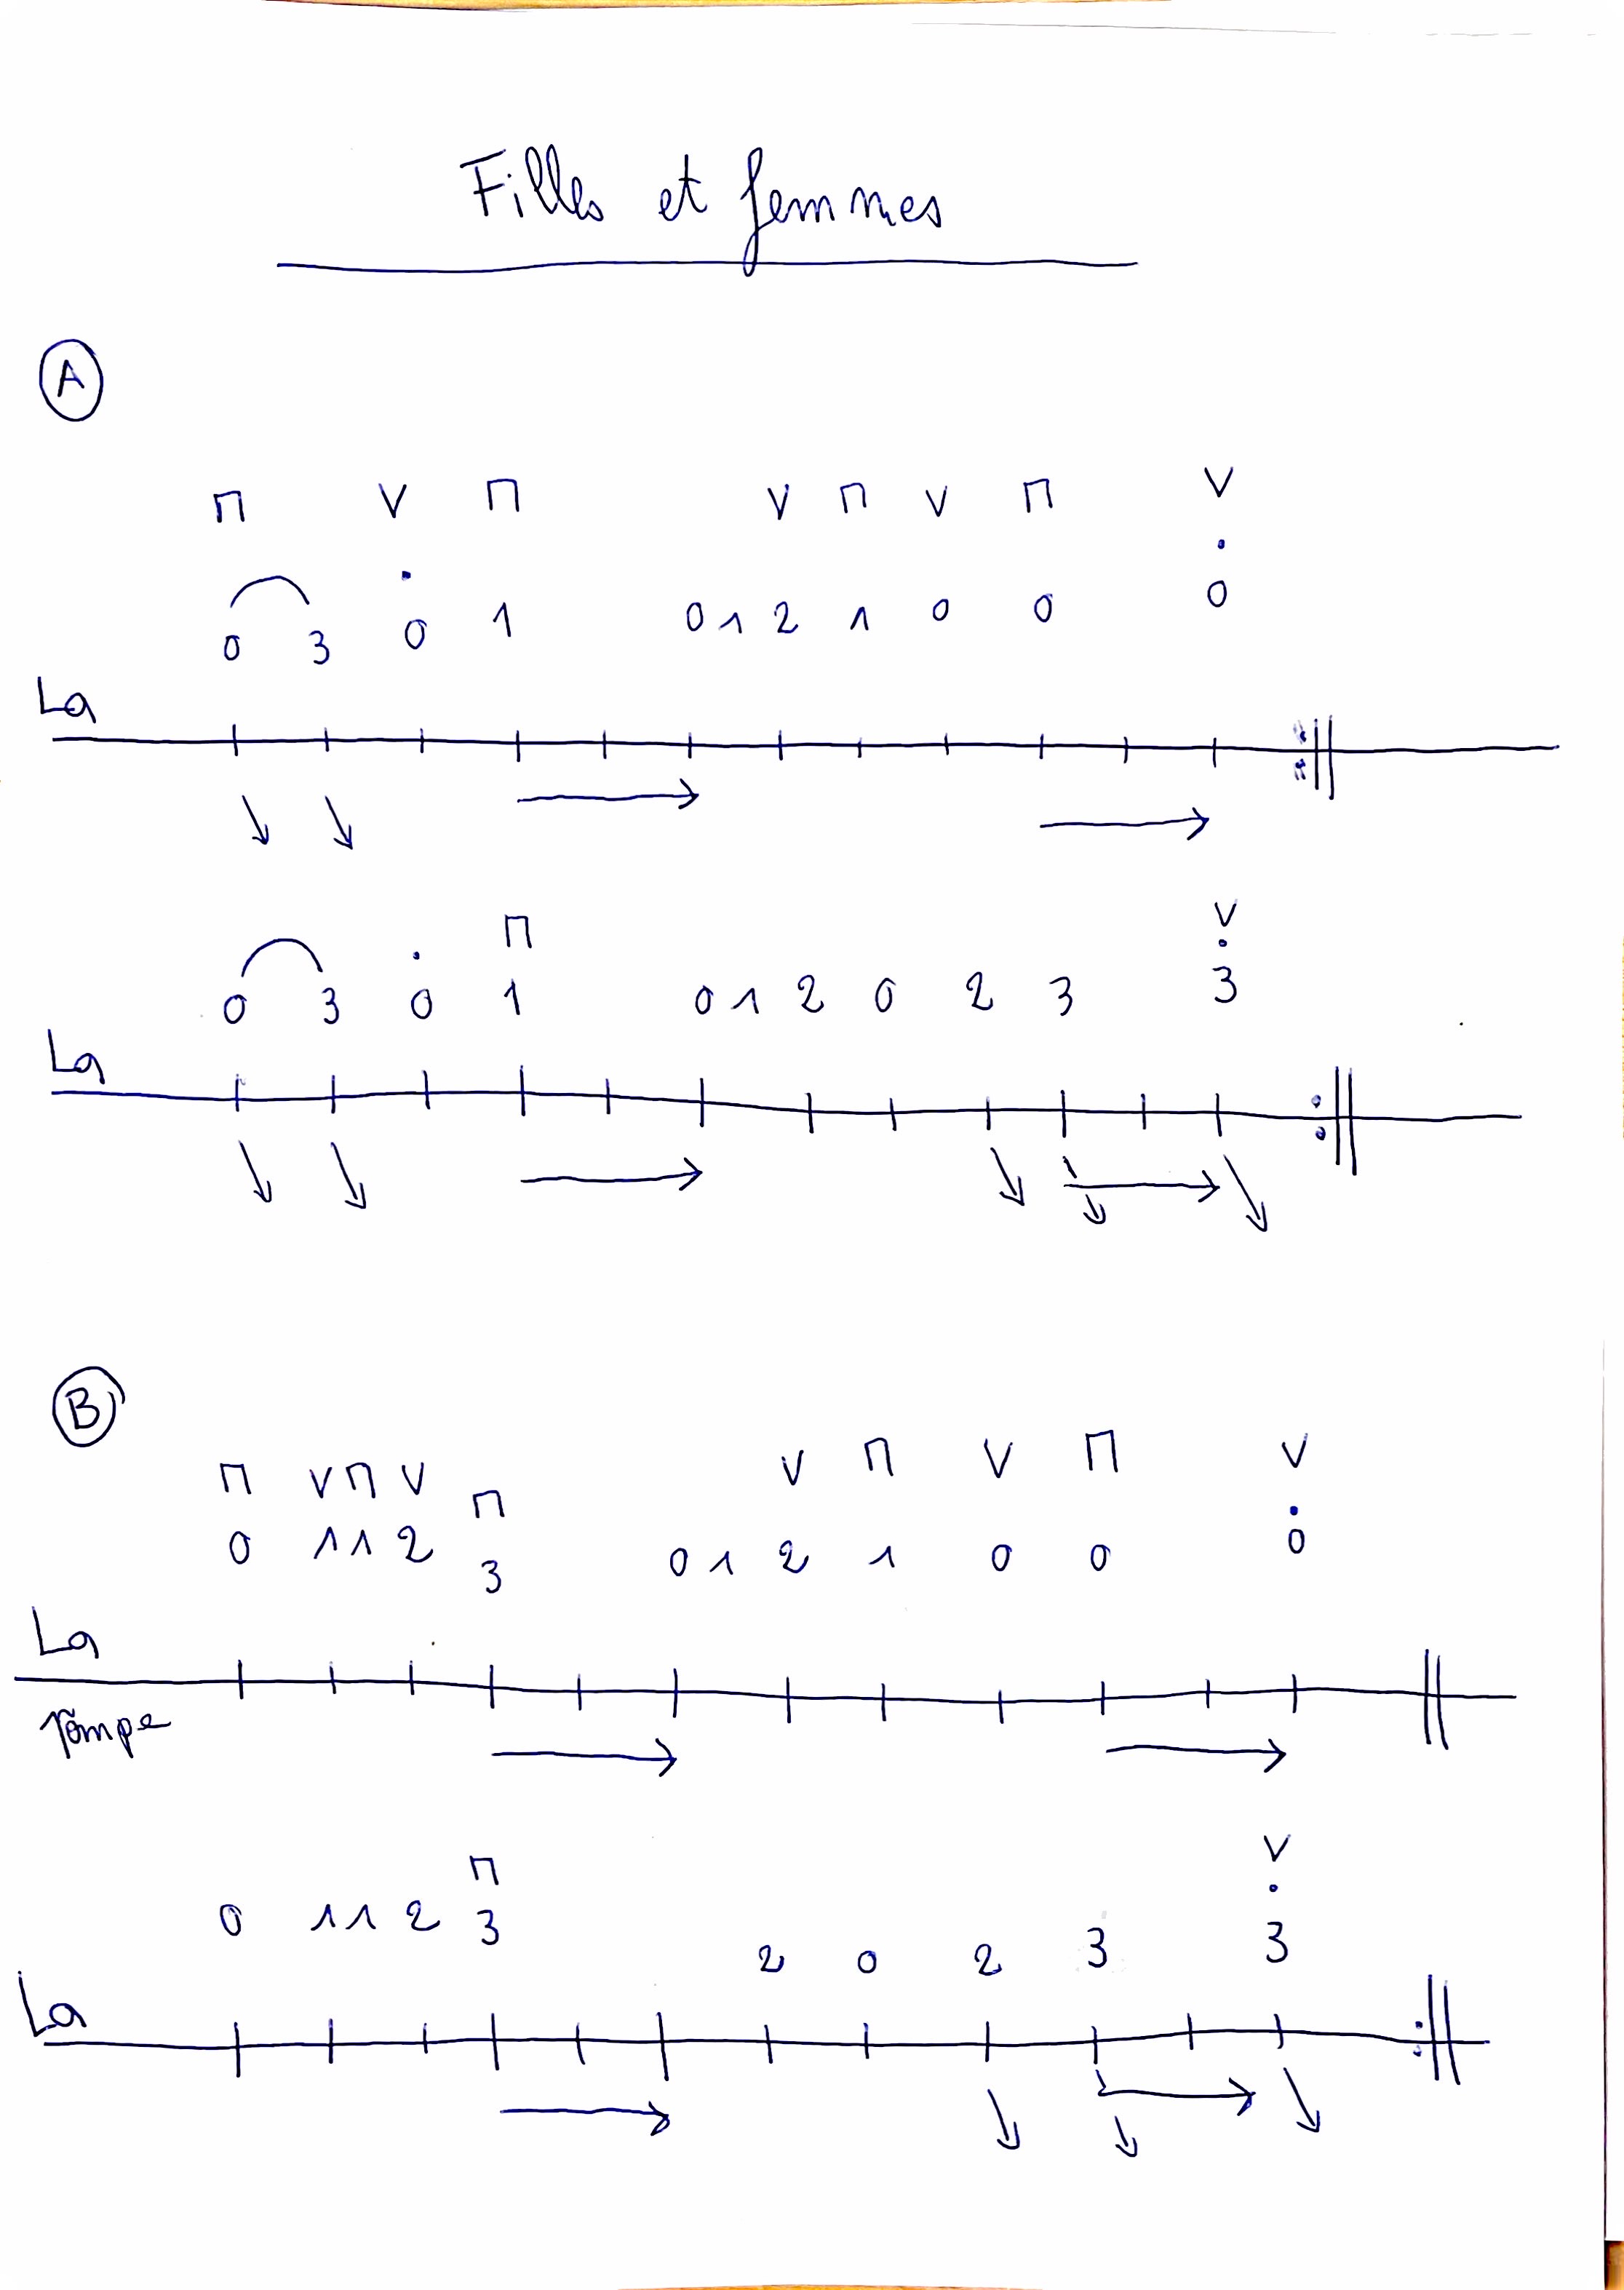 Filles et femmes
A
⊓ V ⊓ V ⊓ V ⊓ V
0 3 0 1 0 1 2 1 0 0 0
La
⊓ V
0 3 0 1 0 1 2 0 2 3 3
La
B
⊓ V ⊓ V ⊓ V ⊓ V ⊓ V
0 1 1 2 3 0 1 2 1 0 0 0
La
⊓ V
0 1 1 2 3 2 0 2 3 3
La